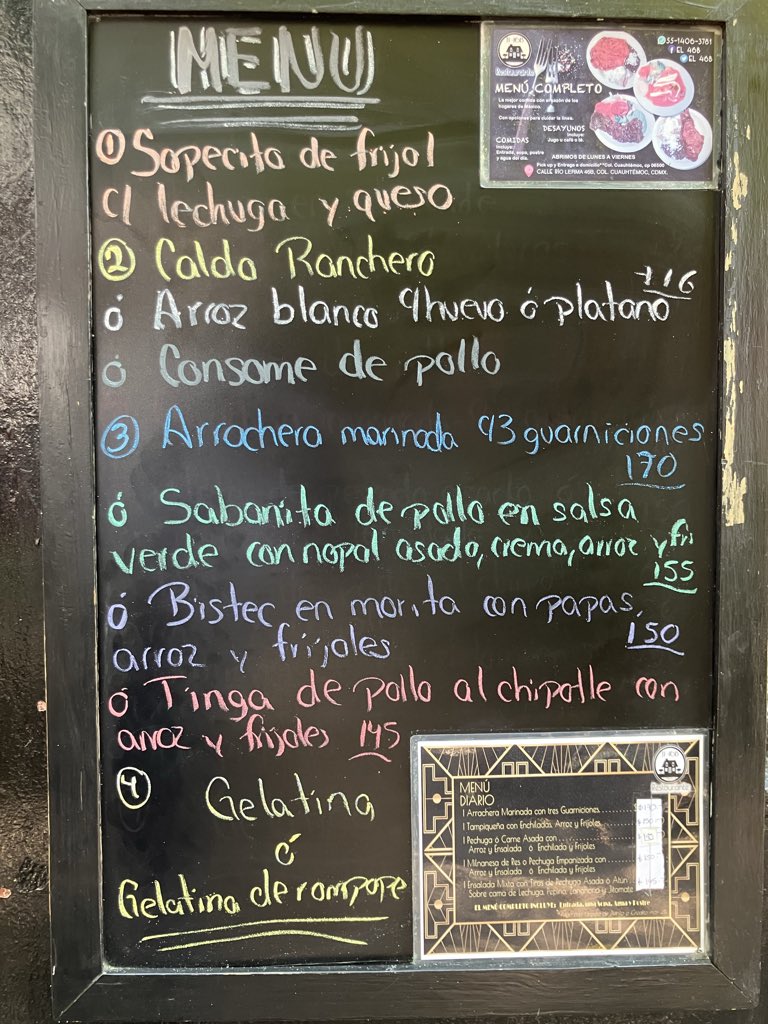 MENU
① Sopecito de frijol
c/ lechuga y queso
② Caldo Ranchero
ó Arroz blanco c/huevo ó platano +16
ó Consome de pollo
③ Arrachera marinada c/3 guarniciones
170
ó Sabanita de pollo en salsa
verde con nopal asado, crema, arroz y fri
155
ó Bistec en morita con papas,
arroz y frijoles 150
ó Tinga de pollo al chipotle con
arroz y frijoles 145
④ Gelatina
ó
Gelatina de rompope
55-1406-3781
EL 46B
EL 46B
Restaurante
MENÚ COMPLETO
La mejor comida con sazón de los
hogares de México.
Con opciones para cuidar la línea.
DESAYUNOS
Incluye:
Jugo y café o té.
COMIDAS
Incluye:
Entrada, sopa, postre
y agua del día.
ABRIMOS DE LUNES A VIERNES
Pick up y Entrega a domicilio**Col. Cuauhtémoc, cp 06500
CALLE RÍO LERMA 46B, COL. CUAUHTÉMOC, CDMX.
Restaurante
MENÚ
DIARIO
1 Arrachera Marinada con tres Guarniciones
1 Tampiqueña con Enchiladas, Arroz y Frijoles
1 Pechuga ó Carne Asada con
Arroz y Ensalada ó Enchilada y Frijoles
1 Milanesa de Res o Pechuga Empanizada con
Arroz y Ensalada ó Enchilada y Frijoles
1 Ensalada Mixta con Tiras de Pechuga Asada ó Atún
Sobre cama de Lechuga, Pepino, Zanahoria y Jitomate
EL MENÚ COMPLETO INCLUYE: